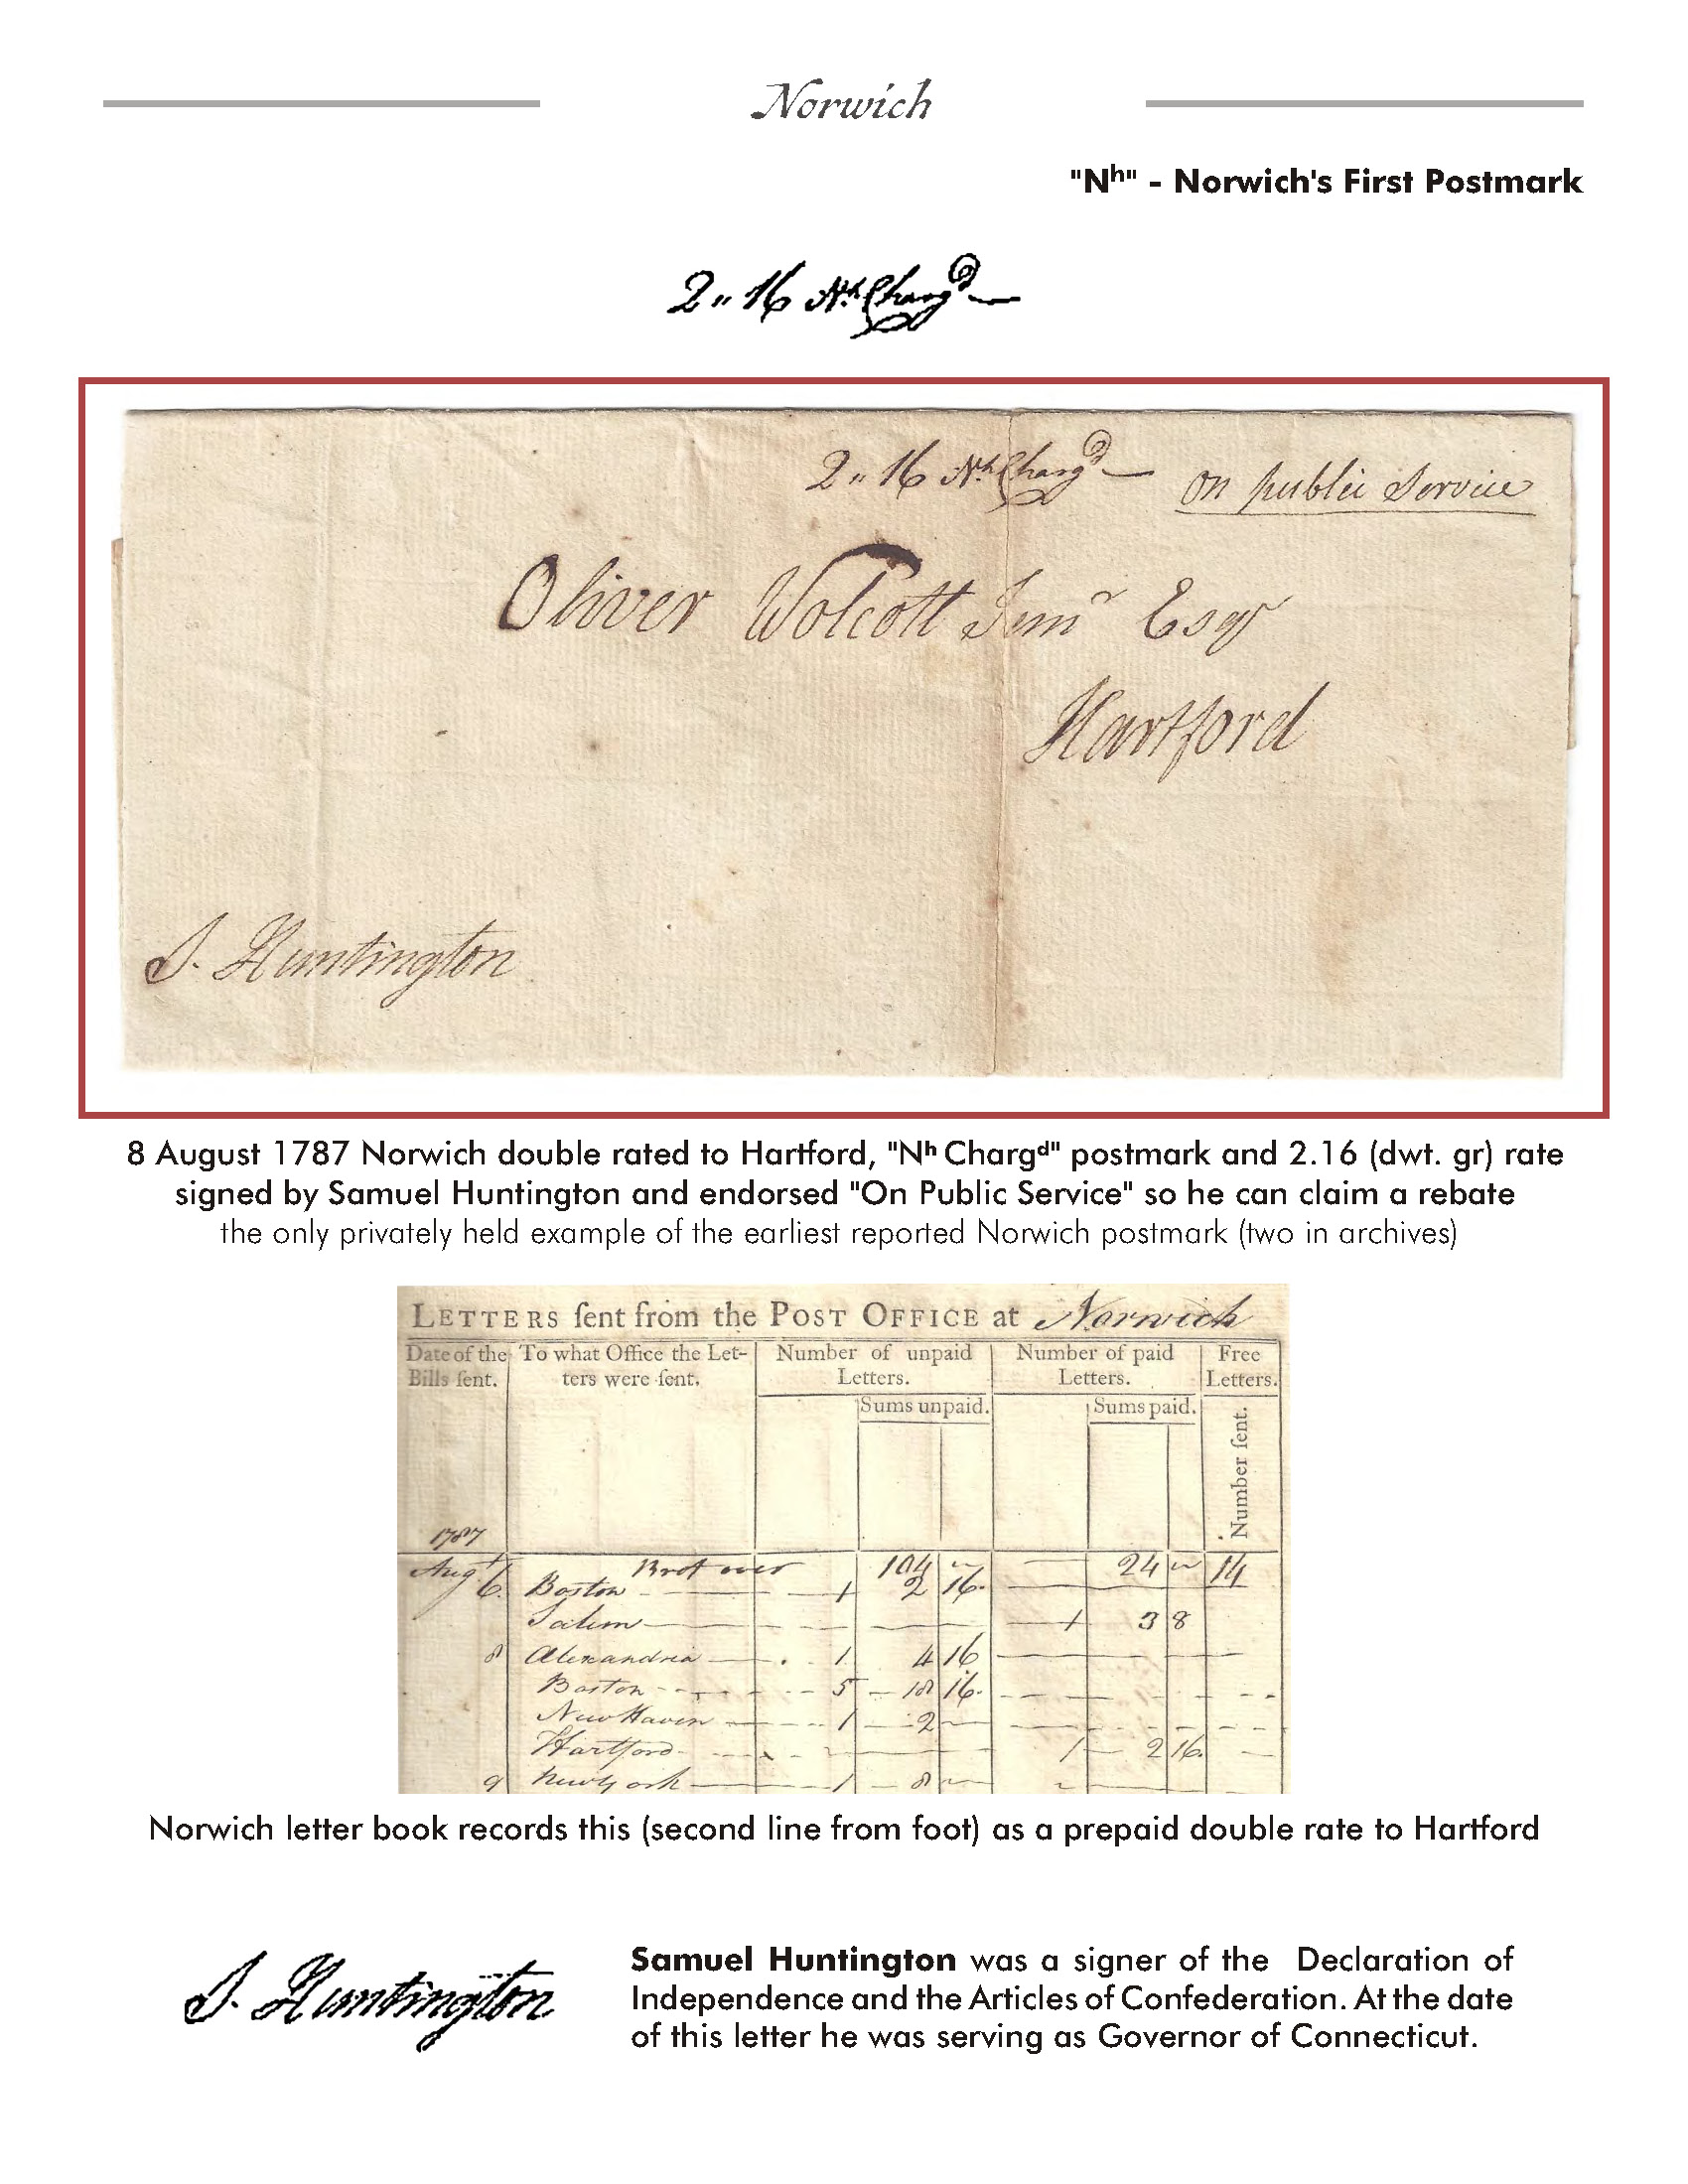 Norwich
"Nʰ" - Norwich's First Postmark
2 " 16 Nʰ Chargᵈ
2 " 16 Nʰ Chargᵈ on public Service
Oliver Wolcott Junʳ Esqʳ
Hartford
S. Huntington
8 August 1787 Norwich double rated to Hartford, "Nʰ Chargᵈ" postmark and 2.16 (dwt. gr) rate
signed by Samuel Huntington and endorsed "On Public Service" so he can claim a rebate
the only privately held example of the earliest reported Norwich postmark (two in archives)
LETTERS ſent from the POST OFFICE at Norwich
Date of the Bills ſent. To what Office the Let-ters were ſent. Number of unpaid Letters. Number of paid Letters. Free Letters.
Sums unpaid. Sums paid. Number ſent.
1787
Brot over 104 24 14
Augᵗ 6. Boston 1 2 16.
Salem 1 3 8
8 Alexandria 1 4 16
Boston 5 18 16.
New Haven 1 2
Hartford 1 2 16.
9 New York 1 8
Norwich letter book records this (second line from foot) as a prepaid double rate to Hartford
S. Huntington
Samuel Huntington was a signer of the Declaration of
Independence and the Articles of Confederation. At the date
of this letter he was serving as Governor of Connecticut.